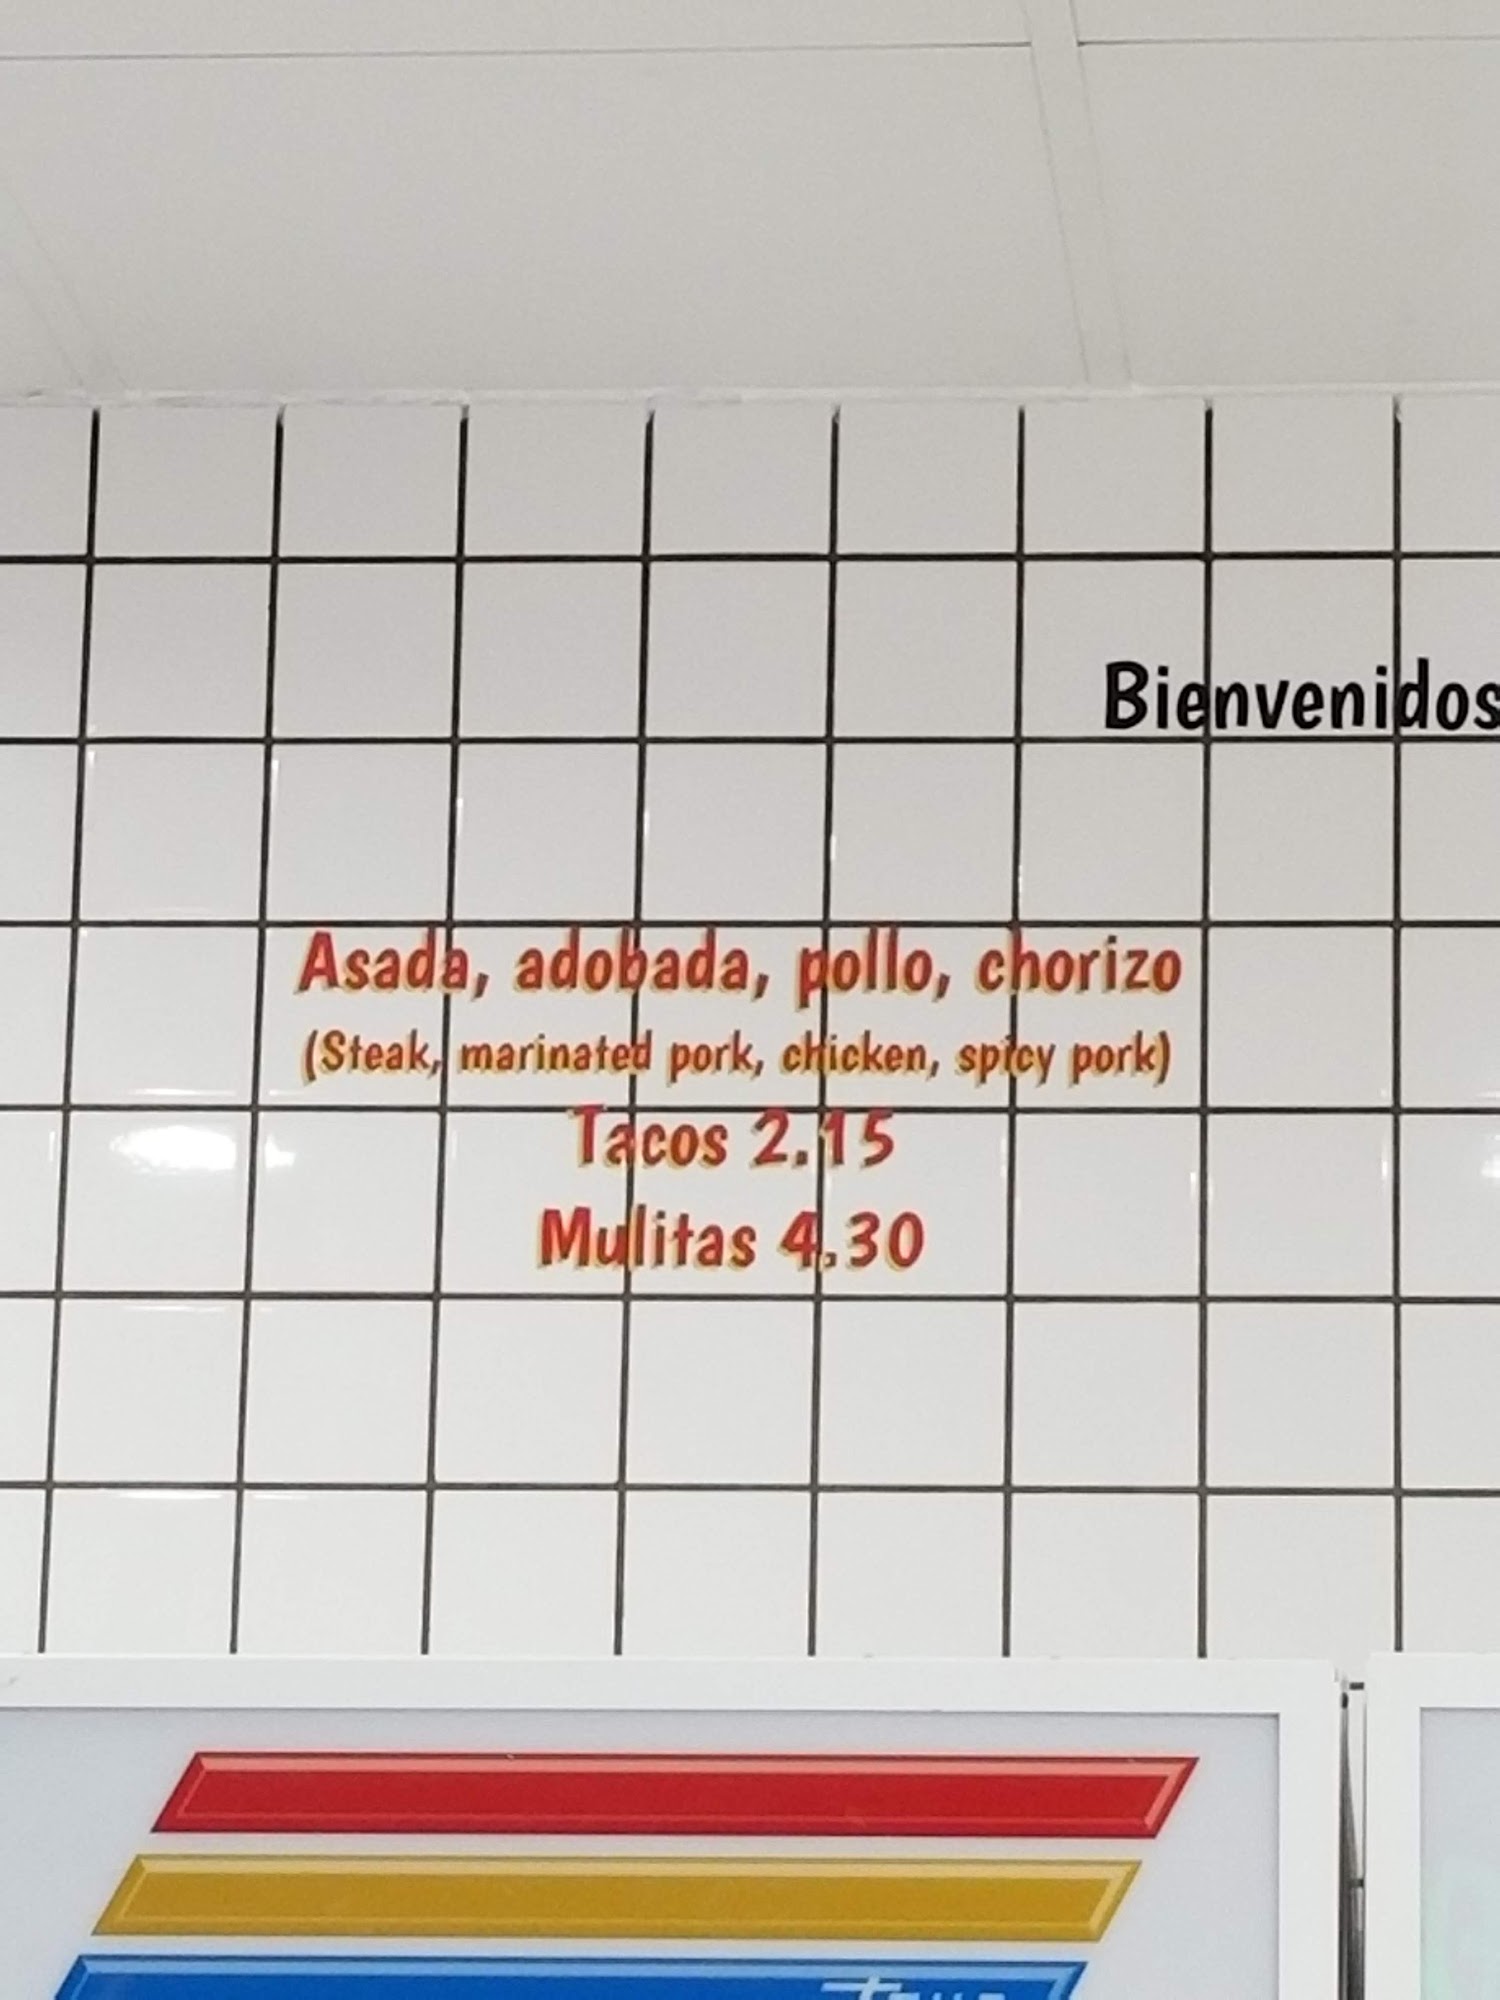 Bienvenidos
Asada, adobada, pollo, chorizo
(Steak, marinated pork, chicken, spicy pork)
Tacos 2.15
Mulitas 4.30